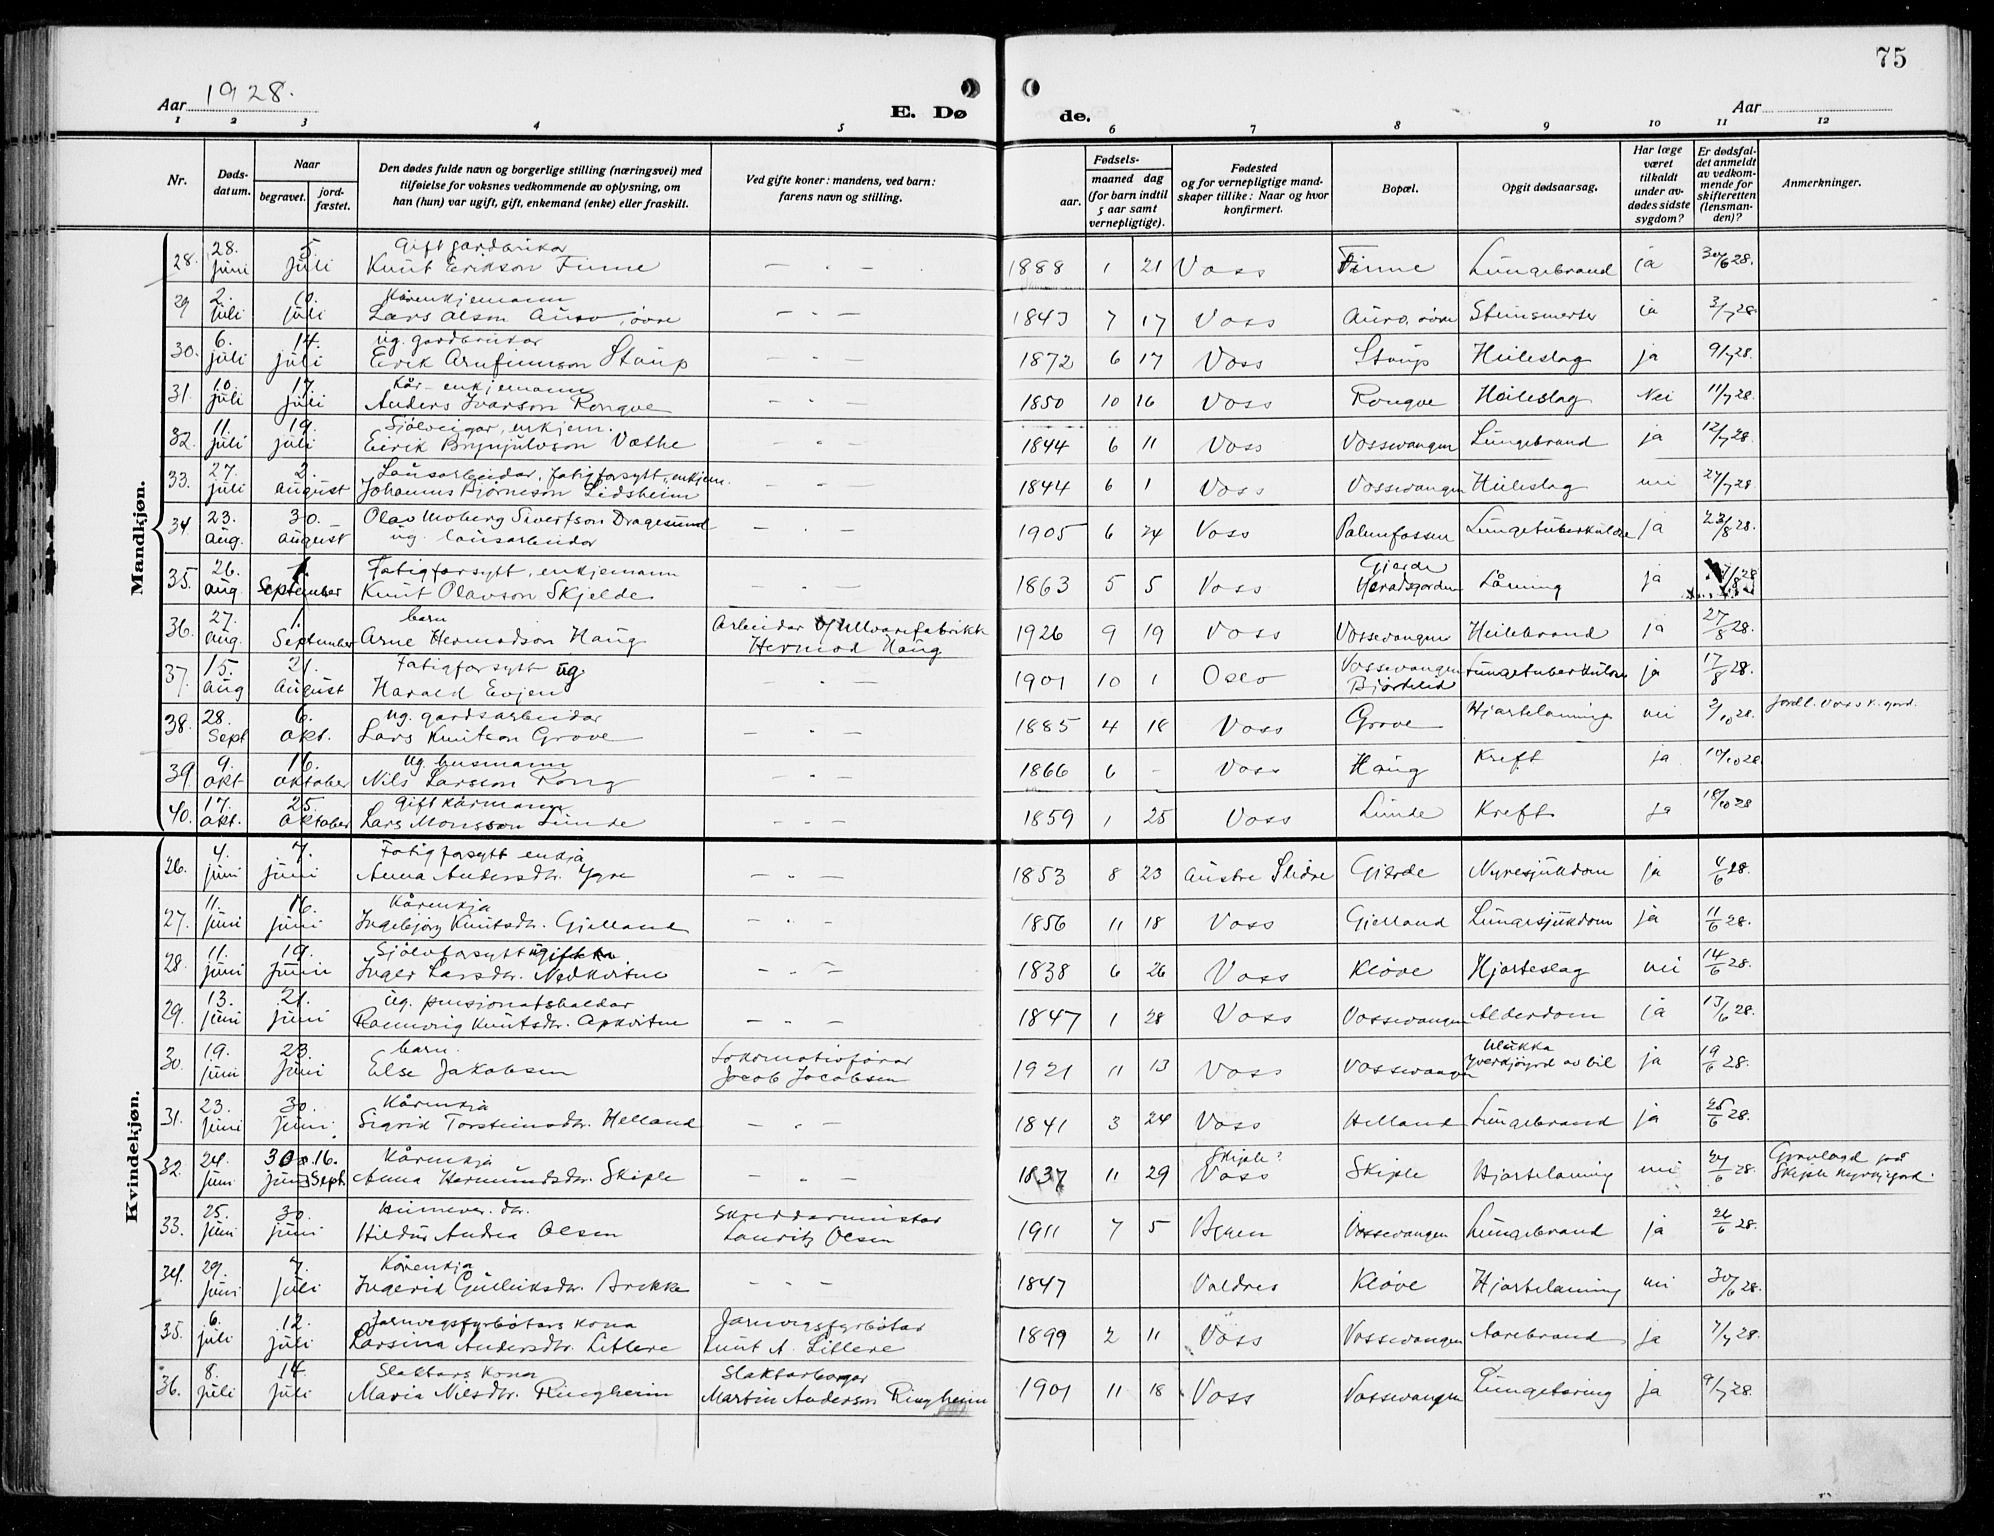 75
Aar 1928.
E. Dø
de.
Aar
1 2 3 4 5 6 7 8 9 10 11 12
Nr.
Døds-
datum.
Naar
begravet.
jord-
fæstet.
Den dødes fulde navn og borgerlige stilling (næringsvei) med
tilføielse for voksnes vedkommende av oplysning, om
han (hun) var ugift, gift, enkemand (enke) eller fraskilt.
Ved gifte koner: mandens, ved barn:
farens navn og stilling.
Fødsels-
aar.
maaned dag
(for barn indtil
5 aar samt
vernepligtige).
Fødested
og for vernepligtige mand-
skaper tillike: Naar og hvor
konfirmert.
Bopæl.
Opgit dødsaarsag.
Har læge
været
tilkaldt
under av-
dødes sidste
sygdom?
Er dødsfal-
det anmeldt
av vedkom-
mende for
skifteretten
(lensman-
den)?
Anmerkninger.
Mandkjøn.
28. 28. juni 5. juli Gift gardbrukar
Knut Erikson Finne - . - 1888 1 21 Voss Finne Lungebrand ja 30/6 28.
29 2. juli 10. juli Kårenkjemann
Lars Olson øvre - . - 1843 7 17 Voss øvre ja 3/7 28.
30. 6. juli 14. juli ug. gardbrukar
Eirik Arnfinnson Staup - . - 1872 6 17 Voss Staup Heileslag ja 9/7 28.
31. 10. juli 17. juli Kår-enkjemann
Anders Ivarson Rongve - . - 1850 10 16 Voss Rongve Heileslag Nei 11/7 28.
32. 11. juli 19. juli Sjölveigar, enkjem.
Eirik Brynjulvson Væthe - . - 1844 6 11 Voss Vossevangen Lungebrand ja 12/7 28.
33. 27. juli 2. august Lausarbeidar, fatigforsytt, enkjem.
Johannes Björneson Lidsheim - . - 1844 6 1 Voss Vossevangen Heileslag nei 27/7 28
34 23. aug. 30. august Olav Moberg Sivertson Dragesund
ug. lausarbeidar - . - 1905 6 24 Voss Palmefossen Lungetuberkulose ja 23/8 28.
35. 26. aug. 1. September Fatigforsytt, enkjemann
Knut Olavson Skjelde - . - 1863 5 5 Voss Gjerde
Heradsgarden Låming ja /8 28
36. 27. aug. 1. September barn
Arne Hermodson Haug Arbeidar v/ Ullvarefabrikk
Hermod Haug 1926 9 19 Voss Vossevangen Heilebrand ja 27/8 28.
37. 15. aug 21. august Fatigforsytt ug
Harald Evjen - . - 1901 10 1 Oslo Vossevangen
Lungetuberkulose ja 17/8 28.
38. 28. Sept 6. okt. ug. gardsarbeidar
Lars Knutson Grove - . - 1885 4 18 Voss Grove Hjartelaming nei 2/10 28. Jordf. Voss k. gard.
39. 9. okt 16. oktober ug. husmann
Nils Larsson Rong - . - 1866 6 - Voss Haug Kreft ja 10/10 28
40. 17. okt. 25. Oktober Gift kårmann
Lars Monsson Lunde - . - 1859 1 25 Voss Lunde Kreft ja 18/10 28
Kvindekjøn.
26. 4. juni 7. juni Fatigforsytt enkja
Anna Andersdtr. Ygre - . - 1853 8 23 Austre Slidre Gjerde Nyresjukdom ja 4/6 28.
27. 11. juni 16. juni Kårenkja
Ingebjörg Knutsdtr. Gjelland - . - 1856 11 18 Voss Gjelland Lungesjukdom ja 11/6 28.
28. 11. juni 19. juni Sjölvforsytt ugift
Inger Larsdtr. Nedkvitne - . - 1838 6 26 Voss Klöve Hjarteslag nei 14/6 28.
29. 13. juni 21. juni ug. pensjonatshaldar
Rannveig Knutsdtr. Opkvitne - . - 1847 1 28 Voss Vossevangen Alderdom ja 13/6 28.
30. 19. juni 23. juni barn.
Else Jakobsen Lokomotivförar
Jacob Jacobsen 1921 11 13 Voss Vossevangen Ulukka
yverkjöyrd av bil ja 19/6 28.
31. 23. juni 30. juni. Kårenkja
Sigrid Torsteinsdtr. Helland - . - 1841 3 24 Voss Helland Lungebrand ja 25/6 28.
32. 24. juni 30. juni 16. Sept Kårenkja
Anna Hermundsdtr. Skiple - . - 1837 11 29 Skiple?
Voss Skiple Hjartelaming nei 27/6 28. Gravlagd på
Skiple kyrkjegard.
33. 25. juni 30. juni Heimever. dtr.
Hildur Andrea Olsen Skreddarmeistar
Lauritz Olsen 1911 7 5 Vossevangen Lungebrand ja 26/6 28.
34. 29. juni 7. juli Kårenkja
Ingerid Gulleiksdtr. Brekke - - - 1847 Valdres Klöve Hjartelaming nei 30/6 28.
35. 6. juli 12. juli Jarnvegsfyrbötars kona
Larsina Andersdtr. Lillere Jarnvegsfyrbötar
Knut A. Lillere 1899 2 11 Voss Vossevangen Aarebrand ja 7/7 28.
36. 8. juli 14. juli Slaktars kona
Maria Nilsdtr. Ringheim Slaktarborgar
Martin Anderson Ringheim 1901 11 18 Voss Vossevangen Lungetæring ja 9/7 28.